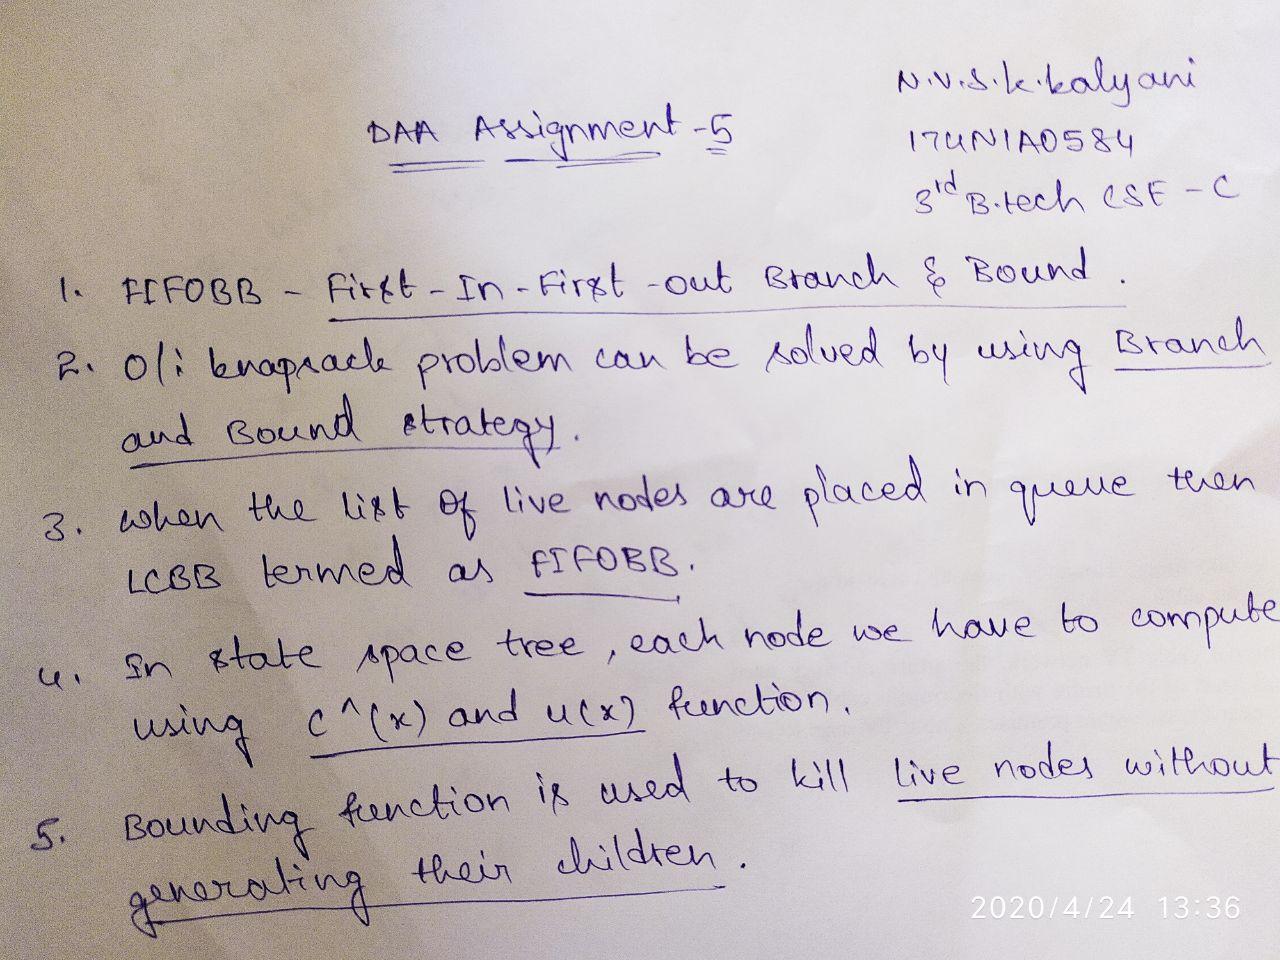 DAA Assignment-5
N.V.S.K.Kalyani
174N1A0584
3rd B.tech CSE-C
1. FIFOBB - First-In-First-out Branch & Bound.
2. 0/1 knapsack problem can be solved by using Branch
and Bound strategy.
3. when the list of live nodes are placed in queue then
LCBB termed as FIFOBB.
4. In state space tree, each node we have to compute
using c^(x) and u(x) function.
5. Bounding function is used to kill live nodes without
generating their children.
2020/4/24 13:36